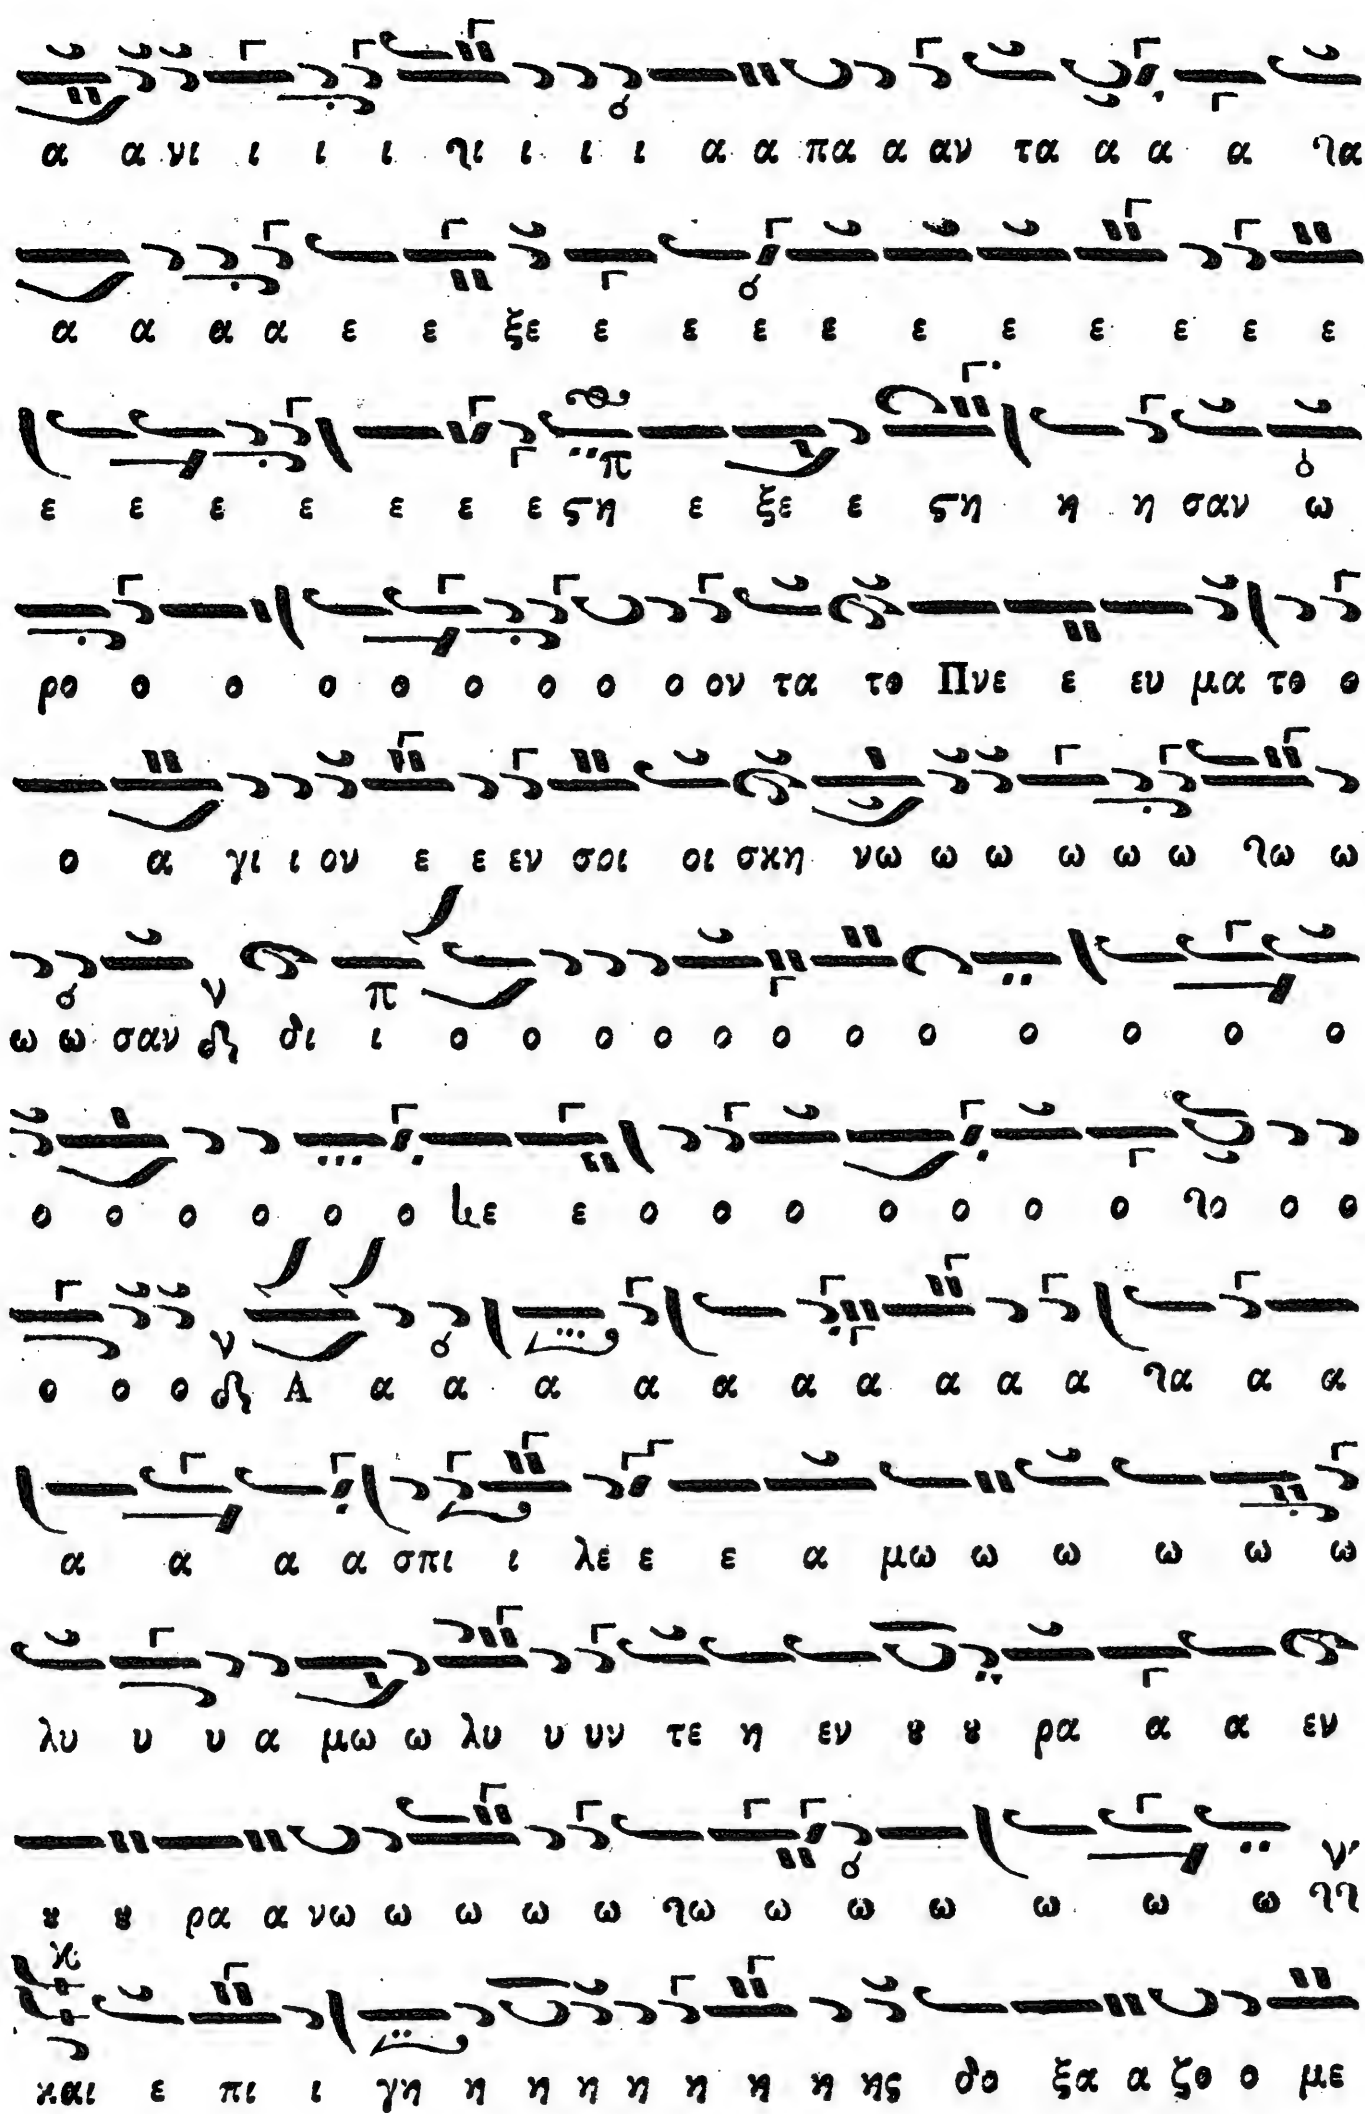 α α νι ι ι ι ϟι ι ι ι α α πα α αν τα α α α ϟα
α α α α ε ε ξε ε ε ε ε ε ε ε ε ε ε
ε ε ε ε ε ε ε ϛη ε ξε ε ϛη η η σαν ω
ρο ο ο ο ο ο ο ο ο ον τα το Πνε ε ευ μα το ο
ο α γι ι ον ε ε εν σοι οι σκη νω ω ω ω ω ω ϟω ω
ω ω σαν δι ι ο ο ο ο ο ο ο ο ο ο ο
ο ο ο ο ο ο κε ε ο ο ο ο ο ο ο ϟο ο ο
ο ο ο Α α α α α α α α α α α ϟα α α
α α α α σπι ι λε ε ε α μω ω ω ω ω ω
λυ υ υ α μω ω λυ υ υν τε η εν ȣ ȣ ρα α α εν
ȣ ȣ ρα α νω ω ω ω ω ϟω ω ω ω ω ω ω
και ε πι ι γη η η η η η η η ης δο ξα α ζο ο με